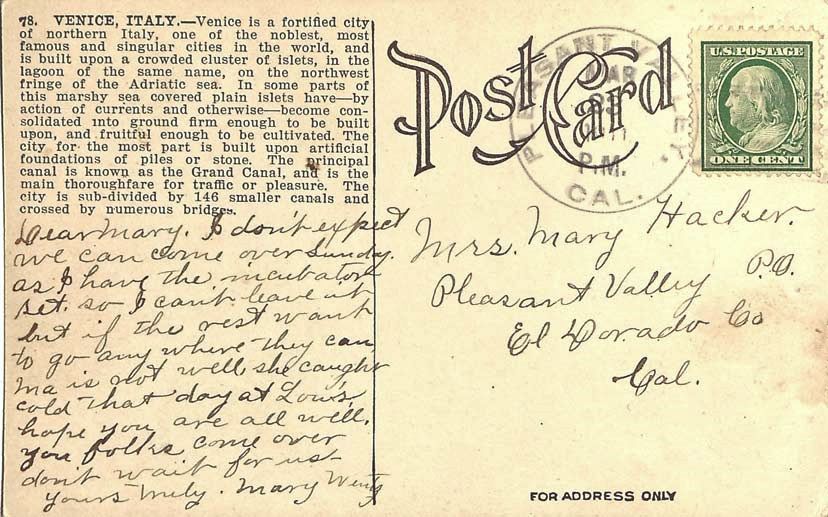 78. VENICE, ITALY.—Venice is a fortified city
of northern Italy, one of the noblest, most
famous and singular cities in the world, and
is built upon a crowded cluster of islets, in the
lagoon of the same name, on the northwest
fringe of the Adriatic sea. In some parts of
this marshy sea covered plain islets have—by
action of currents and otherwise—become con-
solidated into ground firm enough to be built
upon, and fruitful enough to be cultivated. The
city for the most part is built upon artificial
foundations of piles or stone. The principal
canal is known as the Grand Canal, and is the
main thoroughfare for traffic or pleasure. The
city is sub-divided by 146 smaller canals and
crossed by numerous bridges.
Dear Mary. I don't expect
we can come over Sunday.
as I have the incubator
set. so I can't leave it
but if the rest want
to go any where they can
Ma is not well she caught
cold that day at Lou's.
hope you are all well.
you folks come over
dont wait for us
yours truly. Mary
Post Card
PLEASANT VALLEY.
MAR
P.M.
CAL.
U.S. POSTAGE
ONE CENT
Mrs. Mary Hacker.
Pleasant Valley P.O.
El Dorado Co
Cal.
FOR ADDRESS ONLY